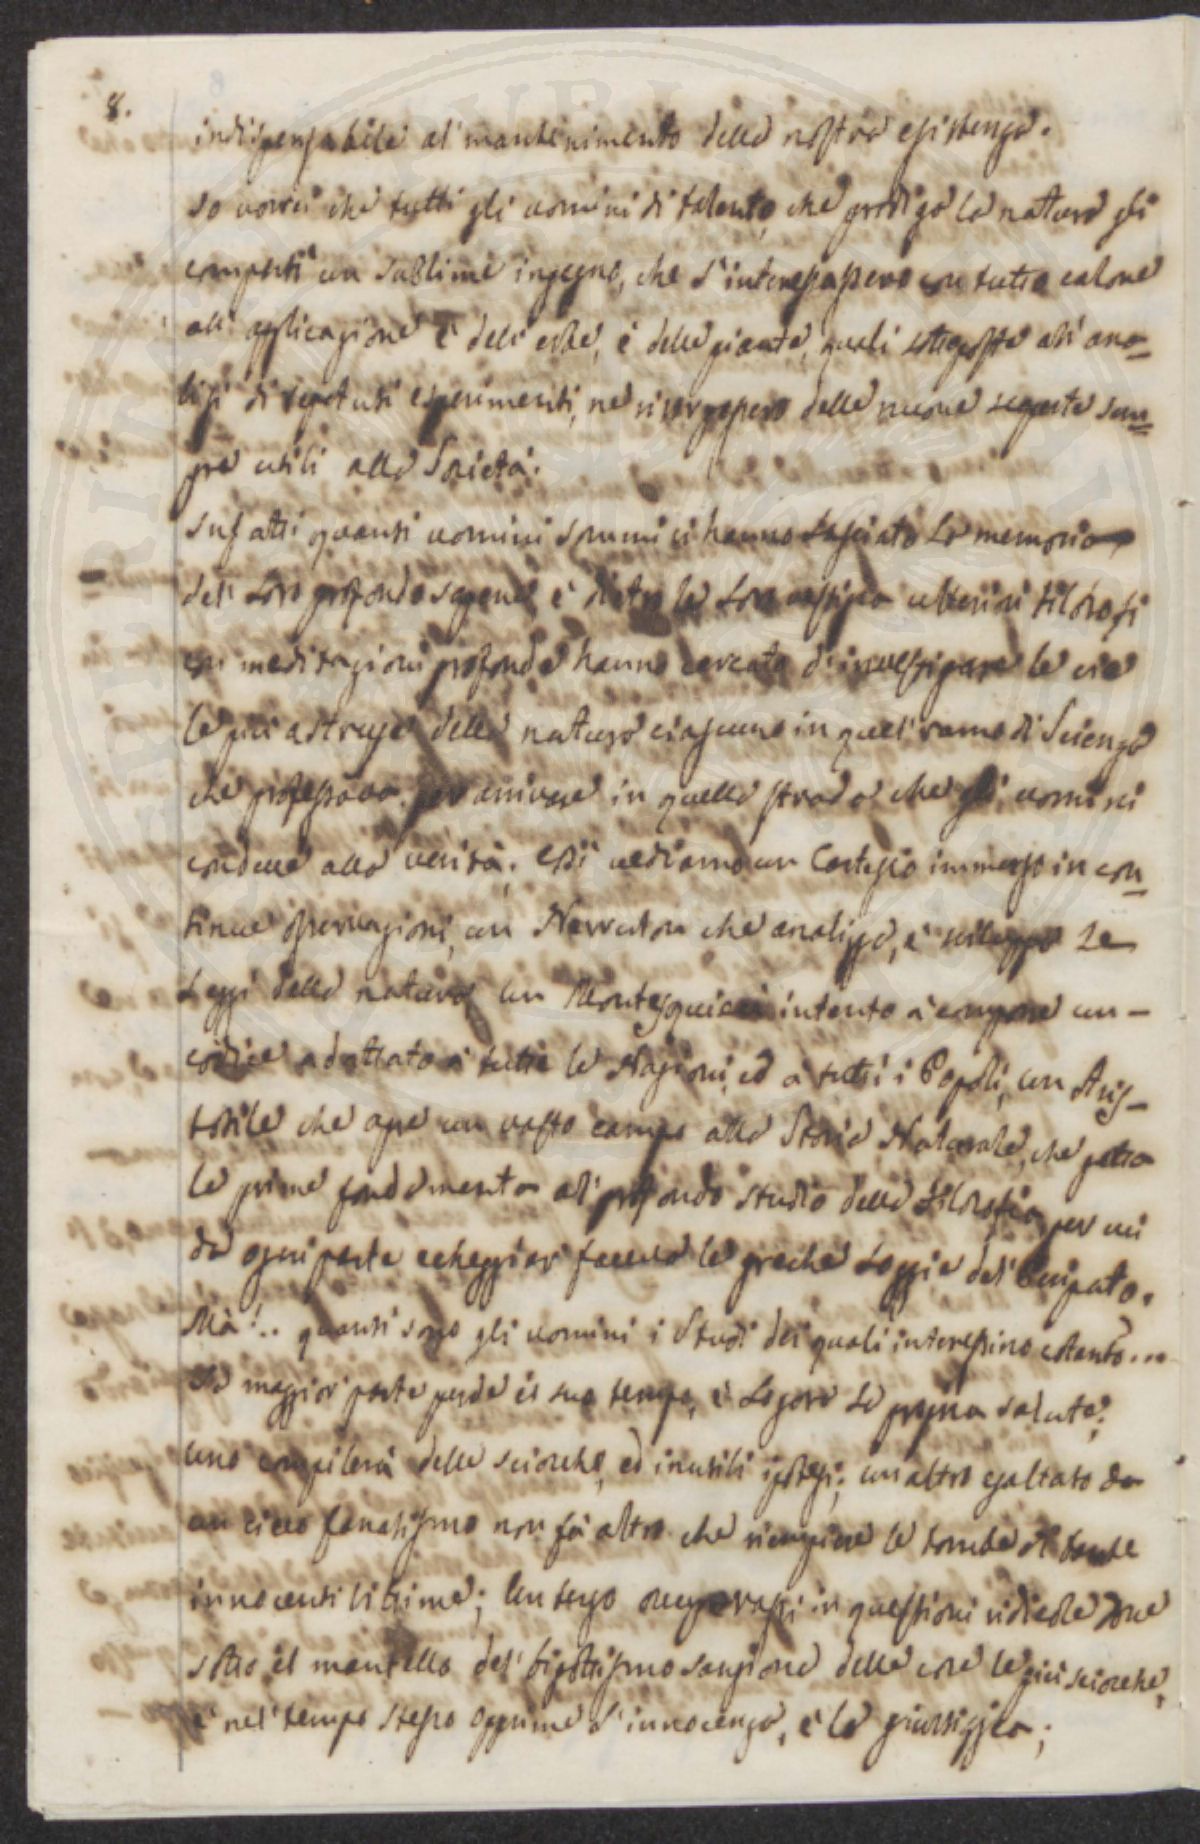 8.
indispensabile al mantenimento della nostra esistenza.
Io vorrei che tutti gli uomini di talento, che prodiga la natura gli
compartì un sublime ingegno, che s'interessassero con tutto calore
all'applicazione e dell'erbe, e delle piante, quali sottoposte all'ana=
lisi di ripetuti esperimenti, ne risorgessero delle nuove scoperte sem=
pre utili alla Società.
Infatti quanti uomini sommi ci hanno lasciato la memoria
del loro profondo sapere, e dietro la loro ulteriori filosofi
con meditazioni profonde hanno cercato d'investigare le vie
le più astruse della natura ciascuno in quel ramo di Scienza
che professava per arrivare in quella strada che gli uomini
conduce alla verità. Così vediamo un Cartesio immerso in con=
tinue osservazioni, un Newuton che analizza, e sviluppa le
Leggi della natura, un Montesquieu intento a comporre un
codice adattato a tutte le Nazioni, ed a tutti i Popoli, un Aris=
totile che apre un vasto campo alla Storia Naturale, che getta
le prime fondamenta al profondo studio della Filosofia, per cui
da ogni parte echeggiar faceva le greche Loggie del
Mà!.. quanti sono gli uomini i Studi dei quali interessino cotanto...
La maggior parte perde il suo tempo, e logora la propria salute;
uno compilerà delle sciocche, ed inutili ipotesi; un altro esaltato da
un cieco fanatismo non fà altro che riempiere le tombe di tante
innocenti vittime; Un terzo in questioni ridicole
sotto il mantello del bigottismo sanziona delle cose le più sciocche,
e nel tempo stesso opprime l'innocenza, e la giustizia;